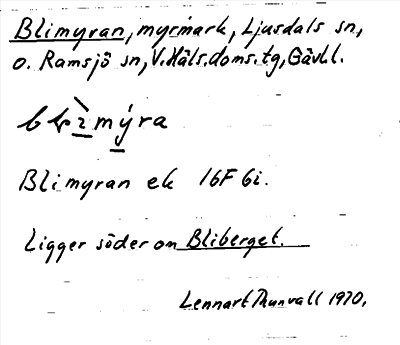 Blimyran, myrmark, Ljusdals sn,
o. Ramsjö sn, V. Häls. doms. tg, Gävl. l.
Blimyran ek 16F 6i.
Ligger söder om Bliberget.
Lennart Thunvall 1970.